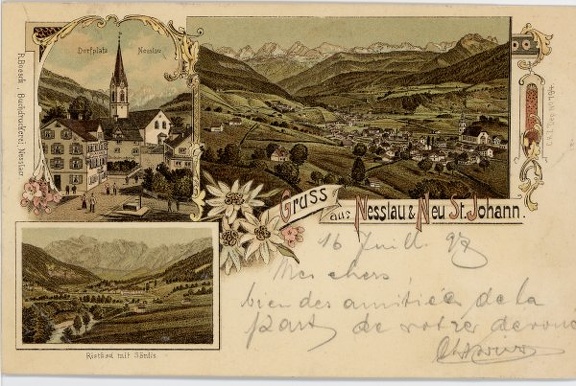 Dorfplatz Nesslau
R. Boesch, Buchdruckerei, Nesslau
Gruss
aus Nesslau & Neu St. Johann.
16 Juill. 98
Mes chers
bien des amitiés de la
part de votre
Rietbad mit Säntis